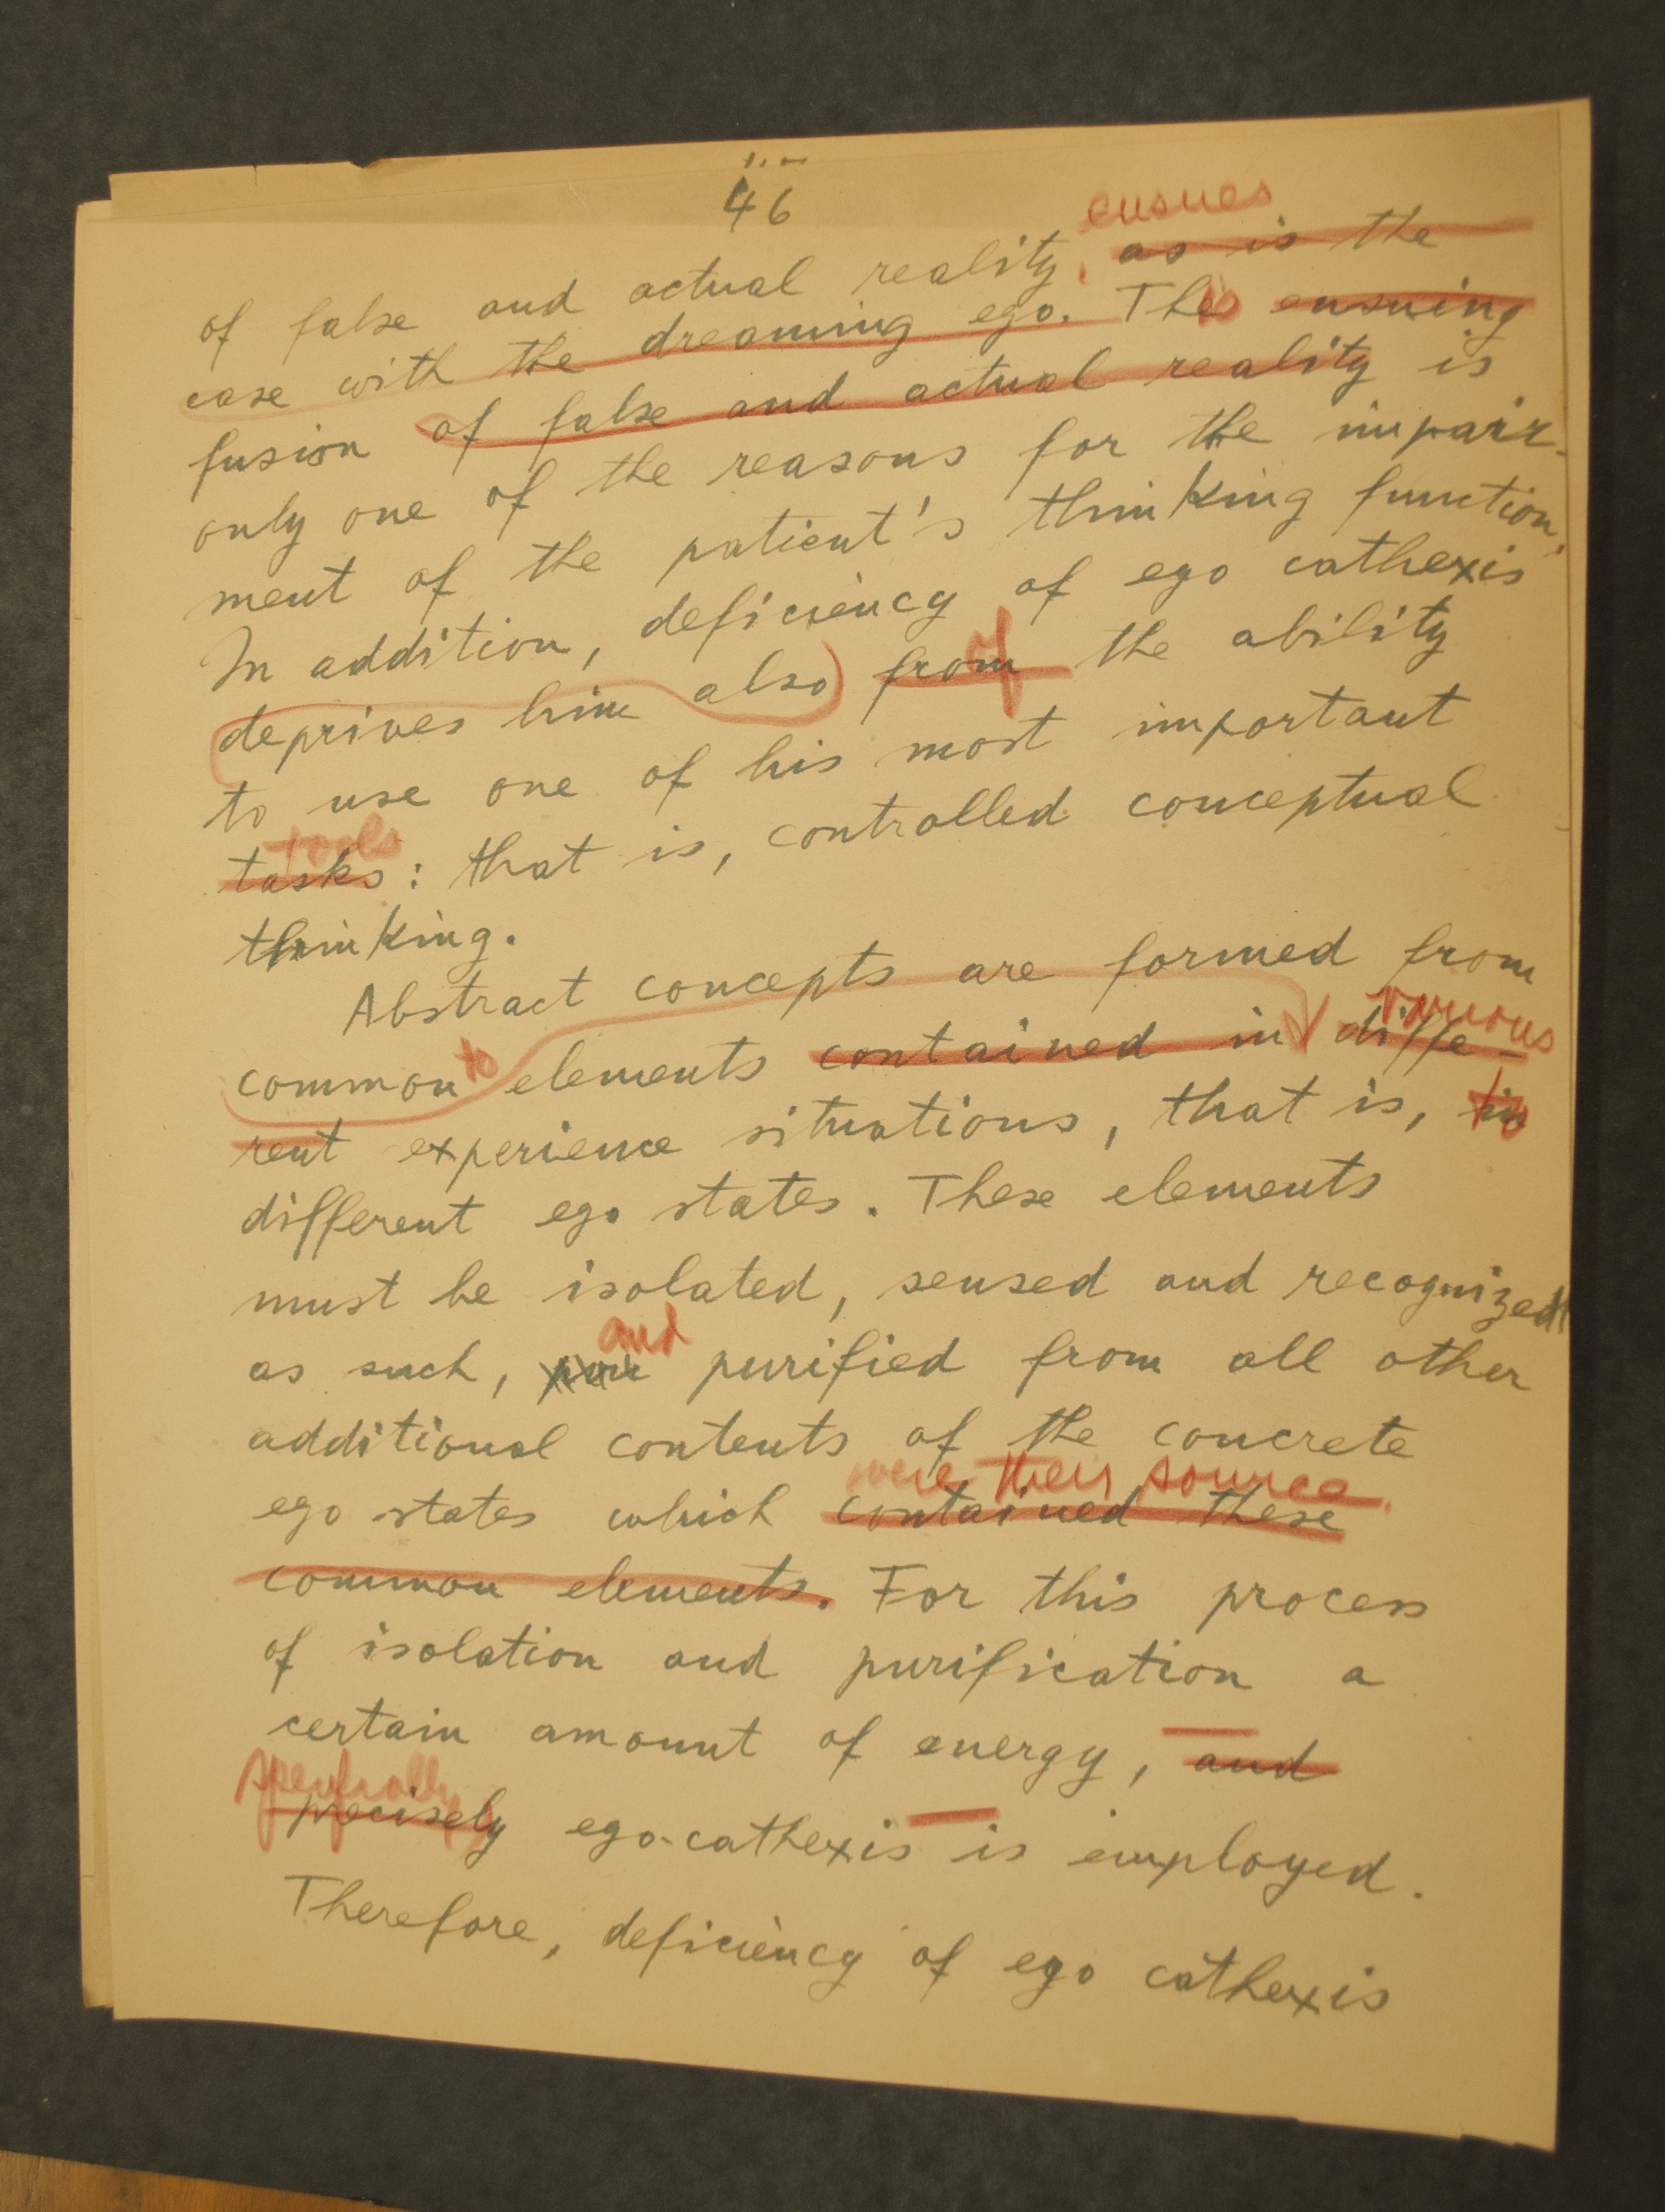 46
ensues
of false and actual reality, as is the
case with the dreaming ego. This ensuing
fusion of false and actual reality is
only one of the reasons for the impair-
ment of the patient's thinking function.
In addition, deficiency of ego cathexis
of
deprives him also from the ability
to use one of his most important
tools
tasks: that is, controlled conceptual
thinking.
Abstract concepts are formed from
various
common to elements contained in diffe-
rent experience situations, that is, to
different ego states. These elements
must be isolated, sensed and recognized
and
as such, purified from all other
additional contents of the concrete
were their source.
ego states which contained these
common elements. For this process
of isolation and purification a
certain amount of energy, and
specifically
precisely ego-cathexis is employed.
Therefore, deficiency of ego cathexis